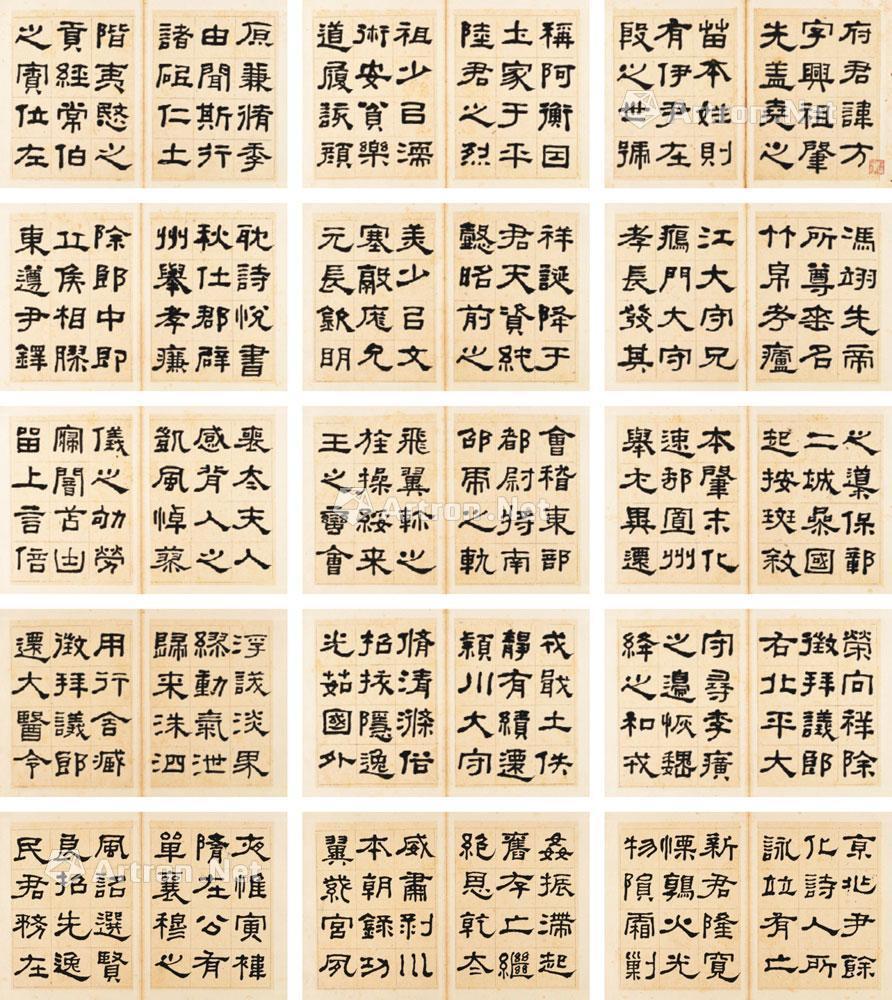 府君諱方
字興祖肇
先蓋堯之
苗本姓則
有伊尹在
殷之世號
稱阿衡因
土家于平
陸君之烈
祖少呂濡
術安貧樂
道履該顏
原兼脩季
由聞斯行
諸砠仁土
階夷愍之
貢經常伯
之寮位左
馮翊先帝
所尊垂名
竹帛考廬
江大守兄
鴈門大守
孝長發其
祥誕降于
君天資純
懿昭前之
美少呂文
塞敦庬允
元長欽明
耽詩悅書
秋仕郡辟
州舉孝廉
除郎中即
丘侯相膠
東遵尹鐸
之導保鄣
二城參國
起按斑敘
本肇末化
速郵置州
舉尤異遷
會稽東部
都尉將南
邵虎之軌
飛翼軫之
旌操綏来
王之蠻會
喪太夫人
感背人之
凱風悼蓼
儀之劬勞
寢闇苫凷
留上言倍
榮向祥除
徵拜議郎
右北平大
守尋李廣
之邊恢魏
絳之和戎
戎戢土佚
靜有績遷
潁川大守
脩清滌俗
招拔隱逸
光茹國外
浮諓淡界
繆動氣泄
歸来洙泗
用行舍臧
徵拜議郎
遷大醫令
京兆尹餘
化詩人所
詠並有亡
新君隆寬
慄鶉火光
物隕霜剿
姦振滯起
舊存亡繼
絕恩乾太
威肅剥川
本朝錄功
翼紫宮夙
夜惟寅褘
隋在公有
單襄穆之
風詔選賢
良招先逸
民君務在
Artron.Net